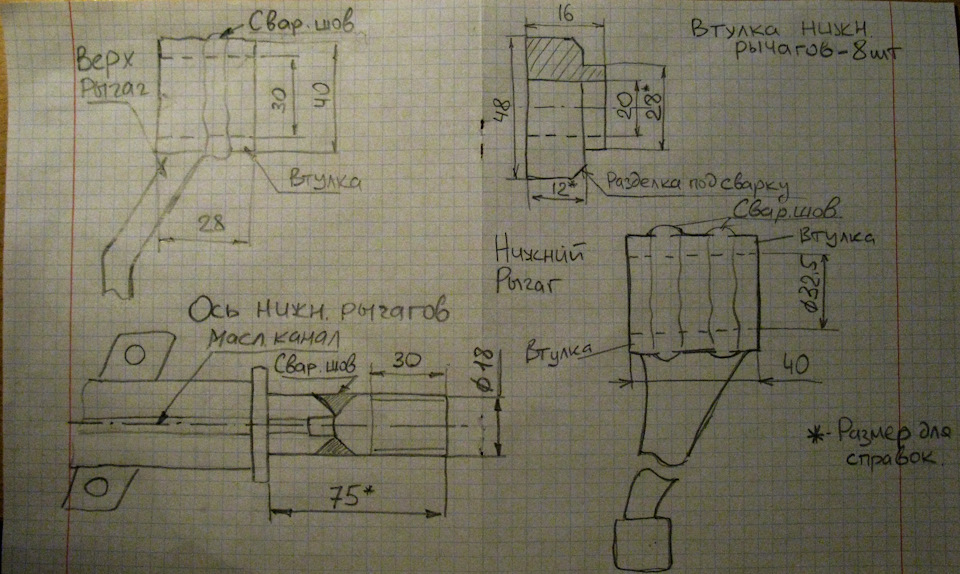 Свар.шов
Верх
Рычаг
30
40
Втулка
28
16
Втулка нижн.
рычагов-8шт
48
20
28*
12*
Разделка под сварку
Свар.шов
Втулка
Нижний
Рычаг
ø32,5
Втулка
40
*-Размер для
справок.
Ось нижн. рычагов
масл.канал
Свар.шов
30
ø18
75*